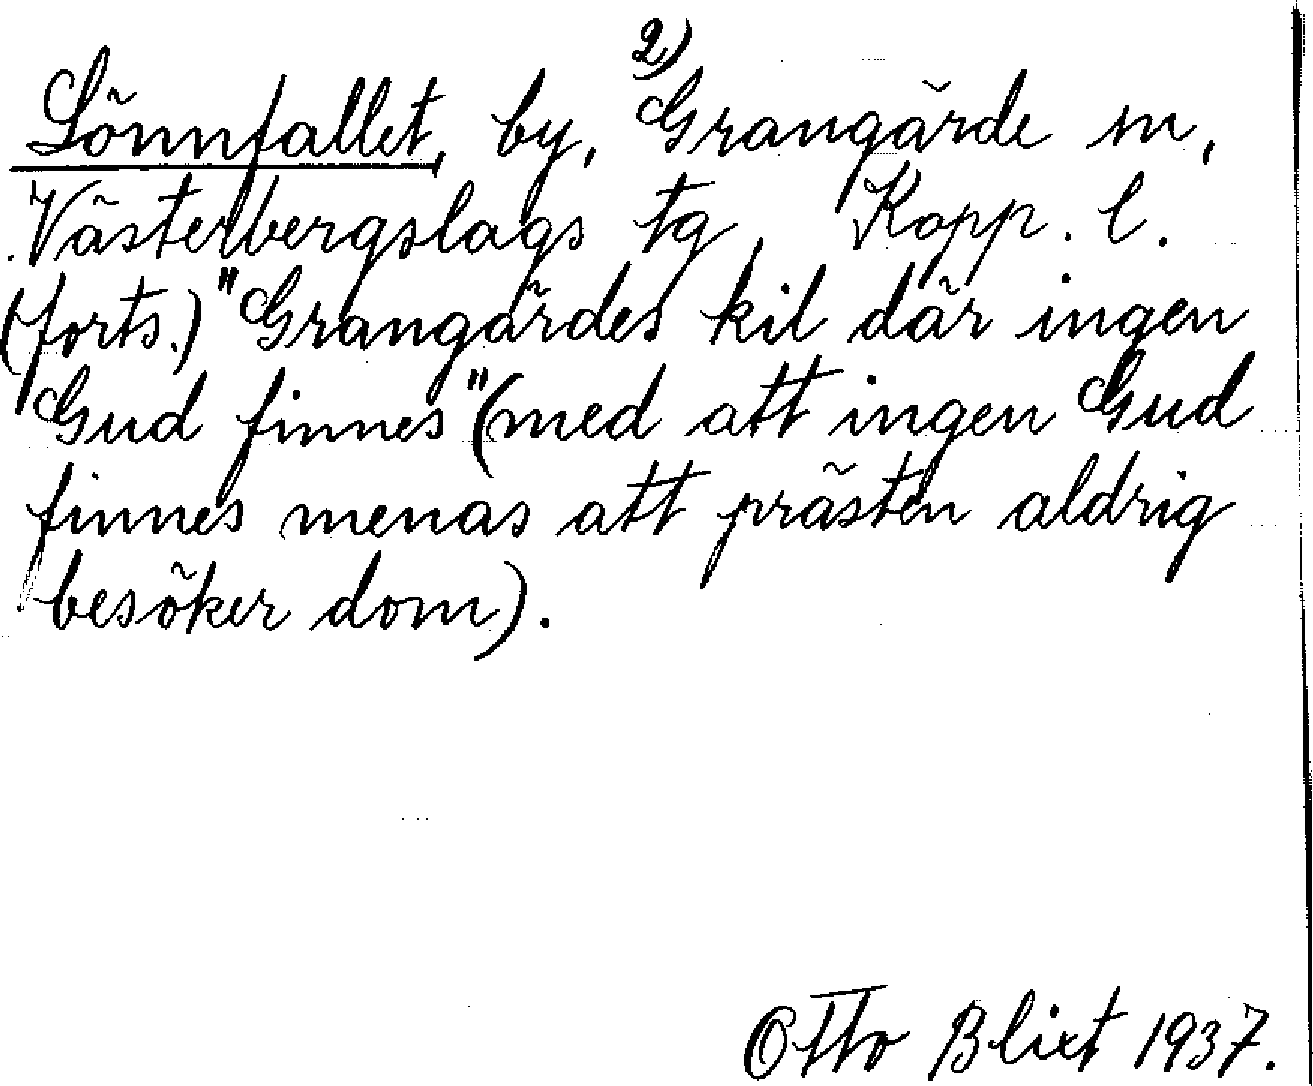 2)
Lönnfallet, by, Grangärde sn,
Västerbergslags tg, Kopp. l.
(forts.) "Grangärdes kil där ingen
Gud finnes" (med att ingen Gud
finnes menas att prästen aldrig
besöker dom).
Otto Blixt 1937.